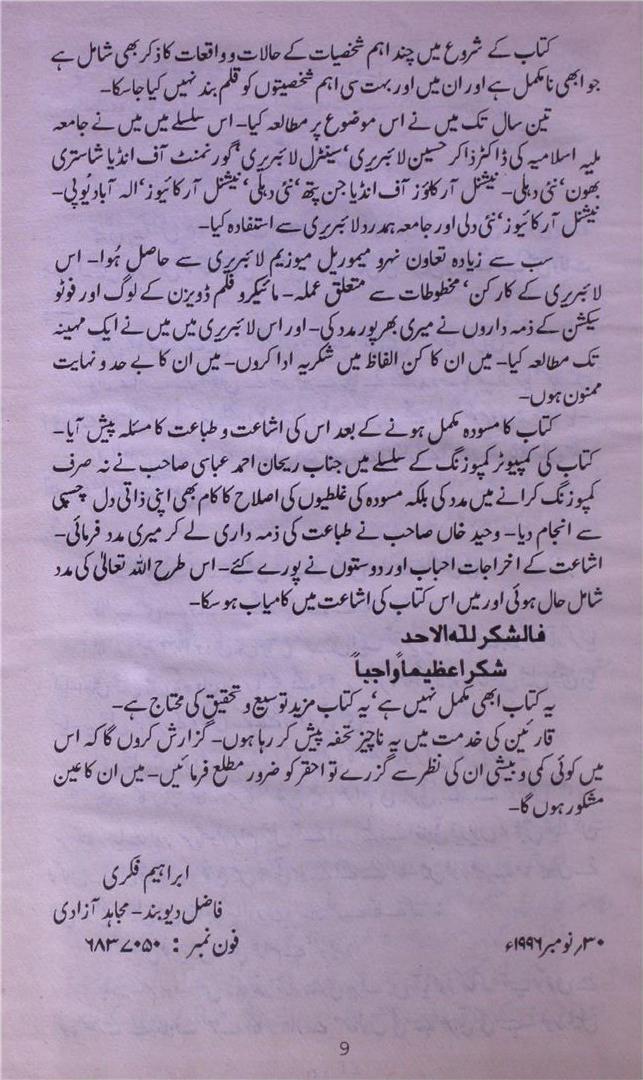 کتاب کے شروع میں چند اہم شخصیات کے حالات و واقعات کا ذکر بھی شامل ہے
جو ابھی نا مکمل ہے اور ان میں اور بہت سی اہم شخصیتوں کو قلم بند نہیں کیا جا سکا۔
تین سال تک میں نے اس موضوع پر مطالعہ کیا۔ اس سلسلے میں میں نے جامعہ
ملیہ اسلامیہ کی ڈاکٹر ذاکر حسین لائبریری، سینٹرل لائبریری، گورنمنٹ آف انڈیا شاستری
بھون، نئی دہلی۔ نیشنل آرکاؤز آف انڈیا جن پتھ، نئی دہلی، نیشنل آرکائیوز، الہ آباد یُوپی۔
نیشنل آرکائیوز، نئی دلی اور جامعہ ہمدرد لائبریری سے استفادہ کیا۔
سب سے زیادہ تعاون نہرو میموریل میوزیم لائبریری سے حاصل ہُوا۔ اس
لائبریری کے کارکن، مخطوطات سے متعلق عملہ۔ مائیکرو فلم ڈویزن کے لوگ اور فوٹو
سیکشن کے ذمہ داروں نے میری بھرپور مدد کی۔ اور اس لائبریری میں میں نے ایک مہینہ
تک مطالعہ کیا۔ میں ان کا کن الفاظ میں شکریہ ادا کروں۔ میں ان کا بے حد و نہایت
ممنون ہوں۔
کتاب کا مسودہ مکمل ہونے کے بعد اس کی اشاعت و طباعت کا مسئلہ پیش آیا۔
کتاب کی کمپیوٹر کمپوزنگ کے سلسلے میں جناب ریحان احمد عباسی صاحب نے نہ صرف
کمپوزنگ کرانے میں مدد کی بلکہ مسودہ کی غلطیوں کی اصلاح کا کام بھی اپنی ذاتی دل چسپی
سے انجام دیا۔ وحید خاں صاحب نے طباعت کی ذمہ داری لے کر میری مدد فرمائی۔
اشاعت کے اخراجات احباب اور دوستوں نے پورے کئے۔ اس طرح اللہ تعالیٰ کی مدد
شامل حال ہوئی اور میں اس کتاب کی اشاعت میں کامیاب ہو سکا۔
فالشکر للہ الاحد
شکراعظیماًواجباً
یہ کتاب ابھی مکمل نہیں ہے، یہ کتاب مزید توسیع و تحقیق کی محتاج ہے۔
قارئین کی خدمت میں یہ ناچیز تحفہ پیش کر رہا ہوں۔ گزارش کروں گا کہ اس
میں کوئی کمی و بیشی ان کی نظر سے گزرے تو احقر کو ضرور مطلع فرمائیں۔ میں ان کا عین
مشکور ہوں گا۔
ابراہیم فکری
فاضل دیوبند۔ مجاہد آزادی
۳۰؍ نومبر ۱۹۹۶ء فون نمبر : ۶۸۳۷۰۵۰
9